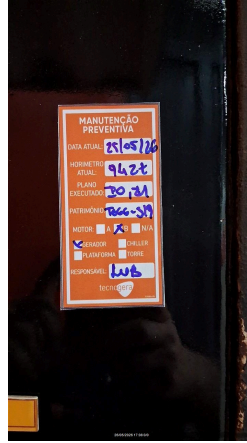 MANUTENÇÃO
PREVENTIVA
DATA ATUAL: 25/05/26
HORIMETRO
ATUAL:
PLANO
EXECUTADO:
PATRIMÔNIO:
MOTOR: A X B N/A
GERADOR CHILLER
PLATAFORMA TORRE
RESPONSÁVEL: LUB
tecnogera